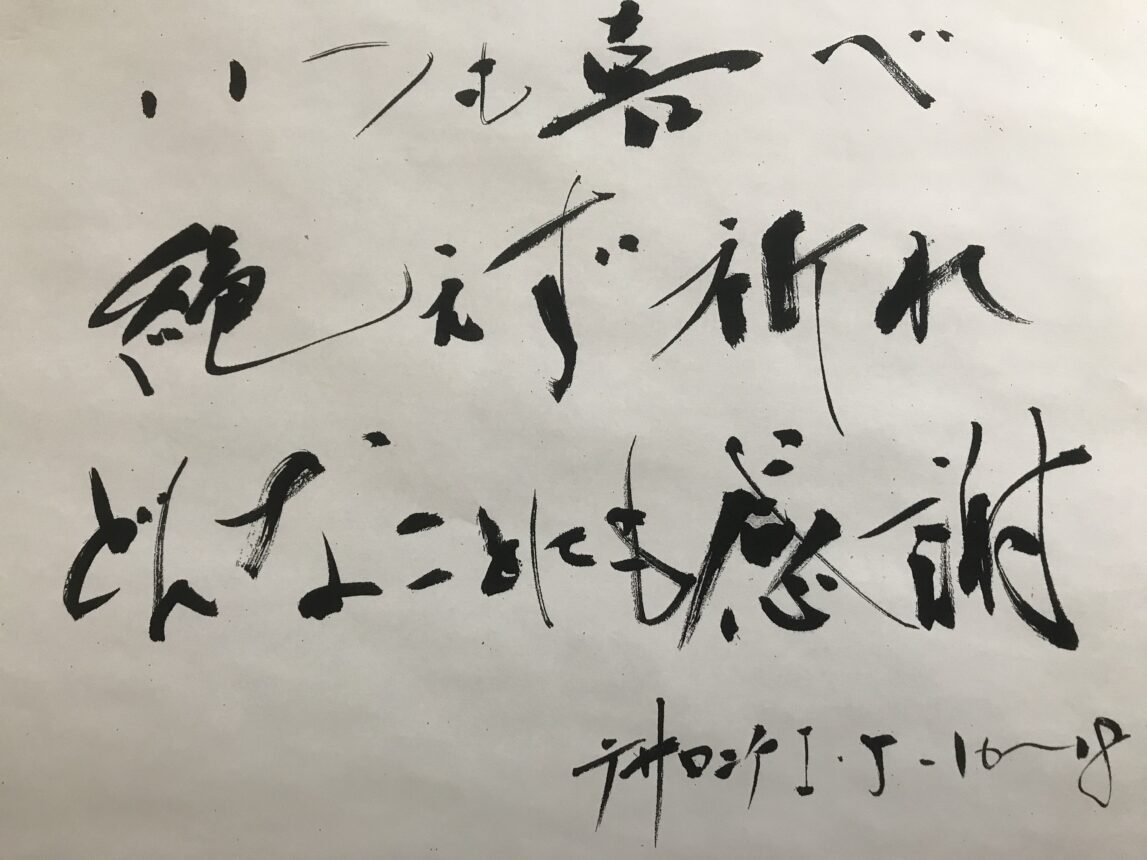 いつも喜べ
絶えず祈れ
どんなことにも感謝
テサロニケⅠ・5-16〜18